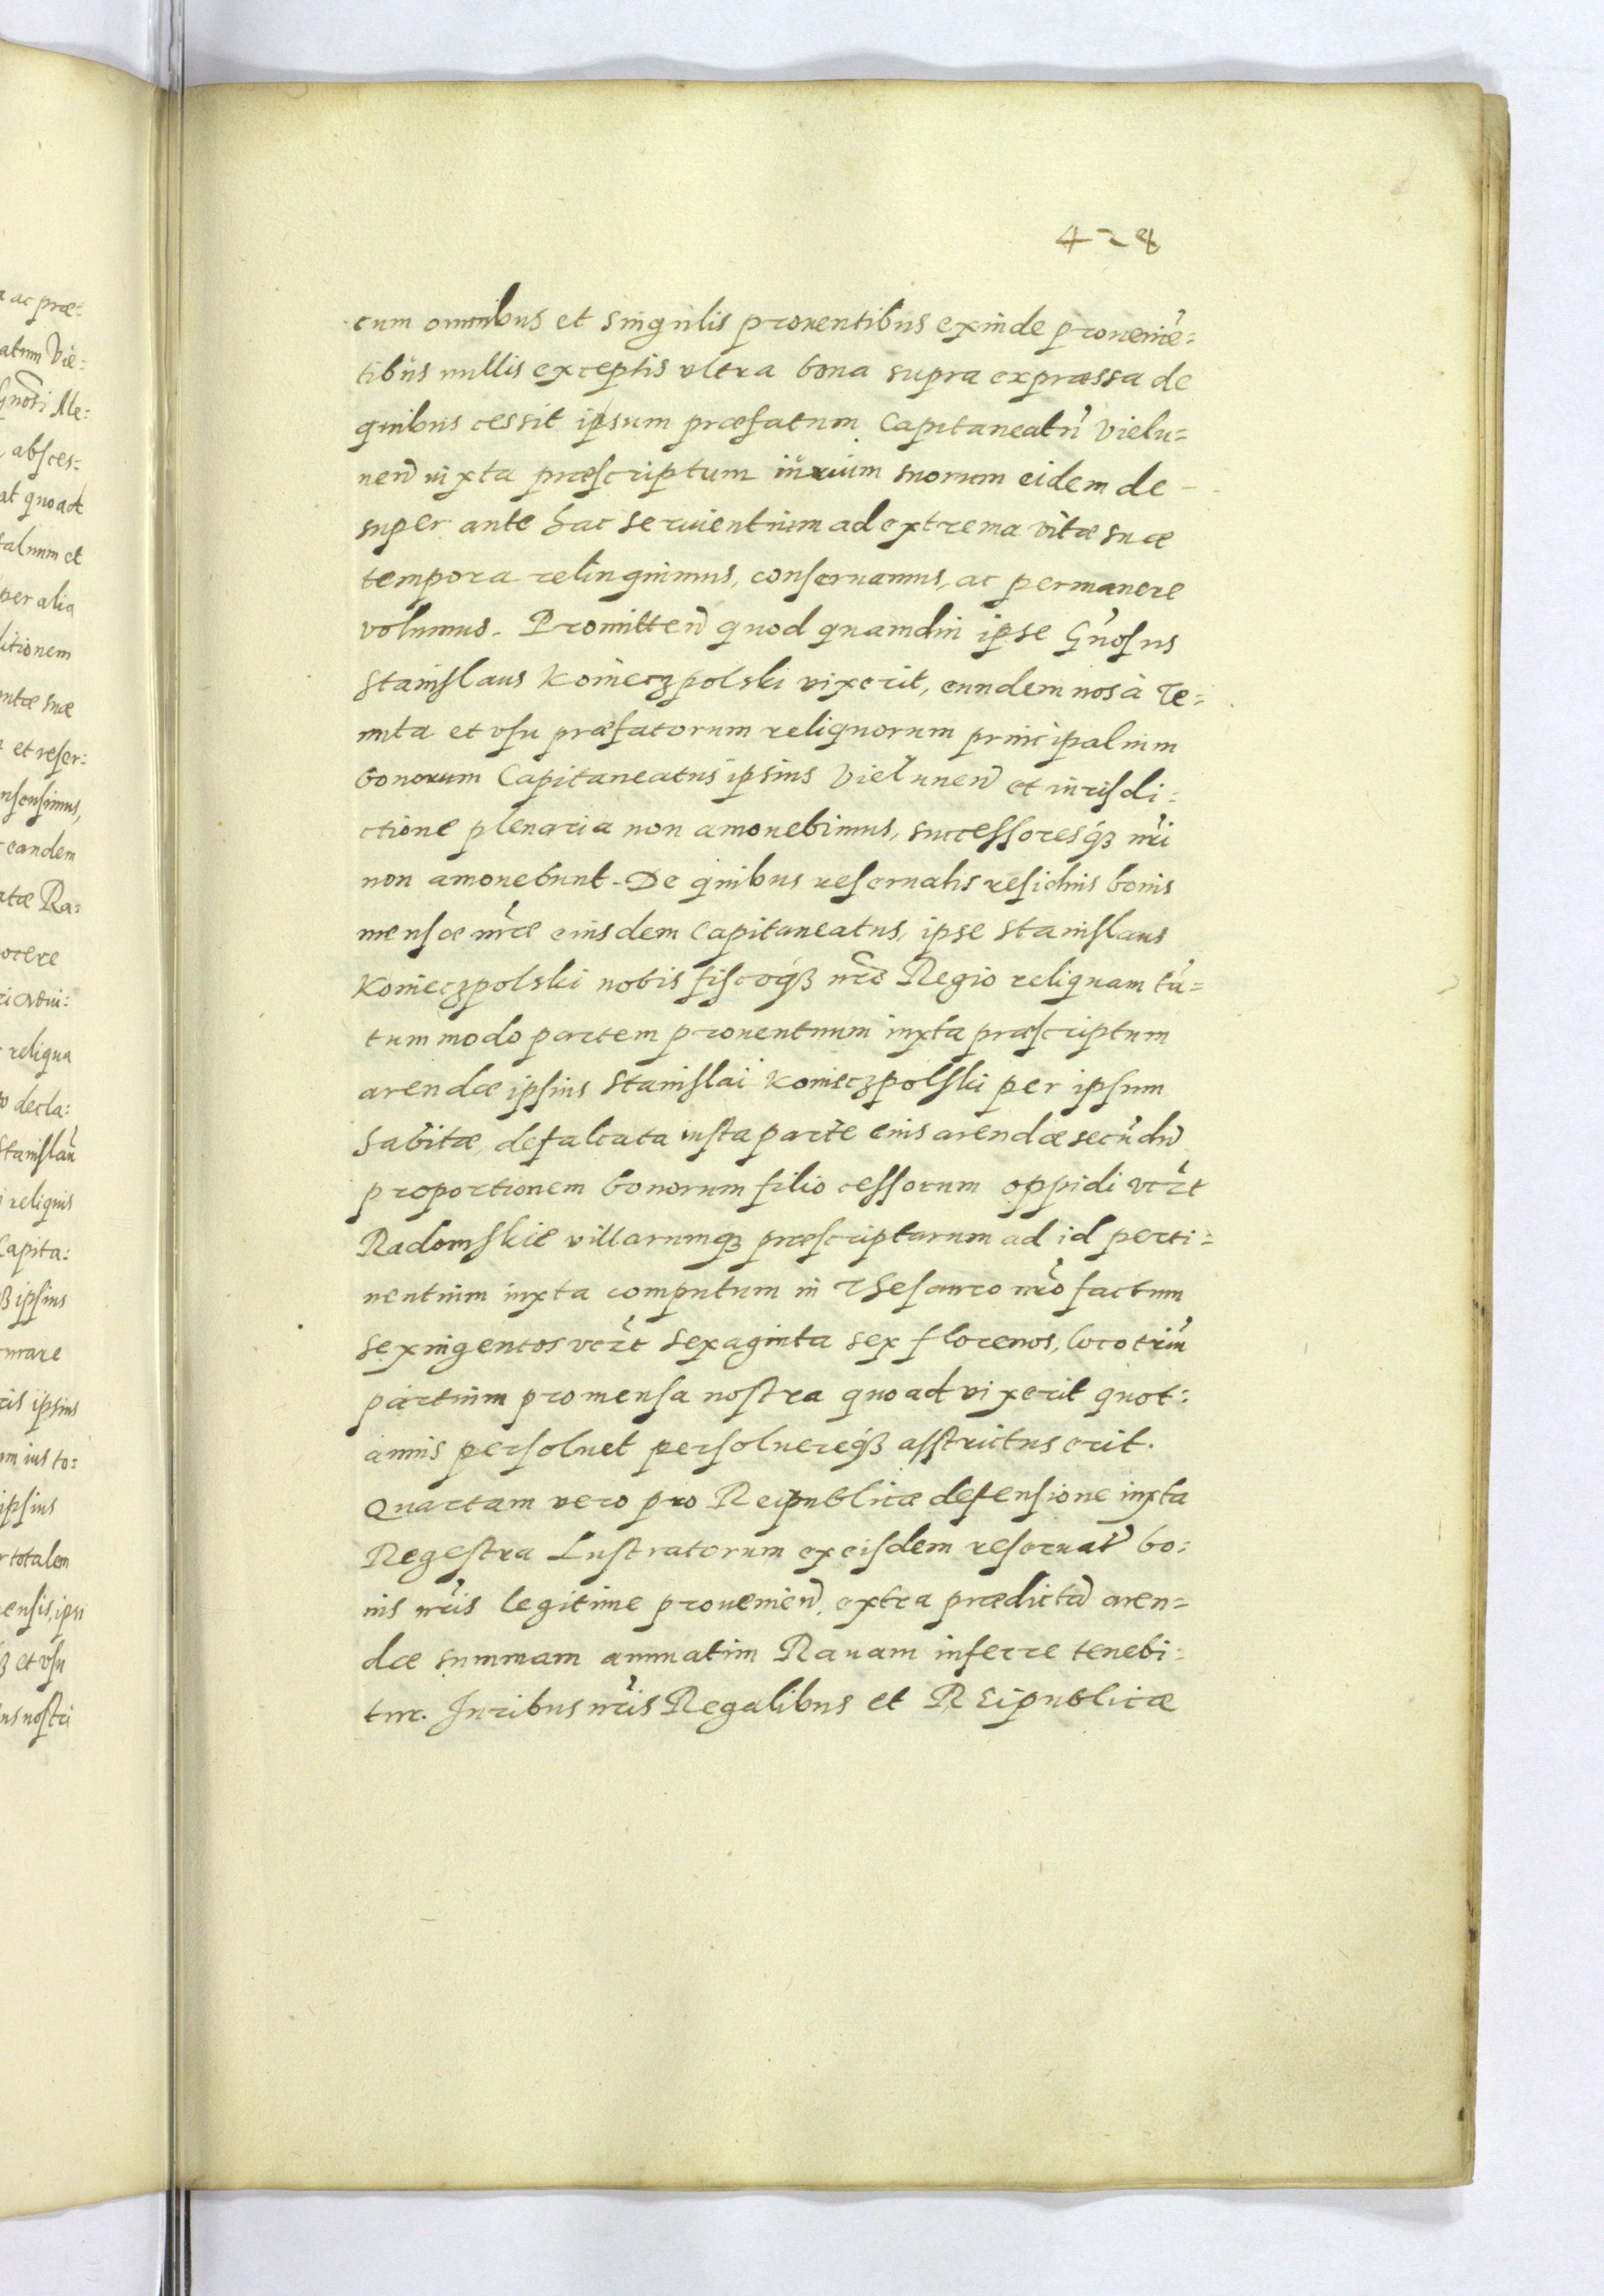 428
a ac præ:
atum Vie:
Gnõsi Me:
absces:
at quoad
talium et
per alia
litionem
uitæ suæ
et reser:
nsensimus,
eandem
atæ Ra:
ocere
reliqua
decla:
Stanislau᷉
reliquis
Capita:
ipsius
ris ipsius
m ius to:
ipsius
totalem
ensis, ipsi
et vsu
us nostri
cum omnibus et singulis prouentibus exinde prouenie᷉=
tibus nullis exceptis vltra bona supra expressa de
quibus cessit ipsum præfatum Capitaneatu᷉ Vielu=
nen̄ iuxta præscriptum iurium suorum eidem de -
super ante hac seruientium ad extrema vitæ suæ
tempora relinquimus, conseruamus, ac permanere
volumus. Promitten̄ quod quamdiu ipse Gn᷉osus
Stanislaus Konieczpolski vixerit, eundem nos à Te=
nuta et vsu præfatorum reliquorum principalium
bonorum Capitaneatus ipsius Vielunen̄ et iurisdi=
ctione plenaria non amouebimus, successoresq́ȝ nr᷉i
non amouebunt. De quibus reseruatis residuis bonis
mensæ nr᷉æ eiusdem Capitaneatus, ipse Stanislaus
Konieczpolski nobis fiscoq́ȝ nr᷉o Regio reliquam ta᷉=
tummodo partem prouentuum iuxta præscriptum
arendæ ipsius Stanislai Konieczpolski per ipsum
habitæ, defalcata iusta parte eius arendæ secu᷉du᷉
proportionem bonorum filio cessorum oppidi vcz᷉t
Radomskie villarumqȝ præscriptarum ad id perti=
nentium iuxta computum in Thesauro nr᷉o factum
sexingentos vcz᷉t sexaginta sex florenos, loco triu᷉
partium pro mensa nostra quoad vixerit quot:
annis persoluet persoluereq́ȝ asstrictus erit.
Quartam vero pro Reipublicæ defensione iuxta
Regestra Lustratorum ex eisdem reseruat̄ bo:
nis nr᷉is legitime prouenien̄, extra prædictā aren=
dæ summam annuatim Rauam inferre tenebi=
tur. Iuribus nr᷉is Regalibus et REipublicæ